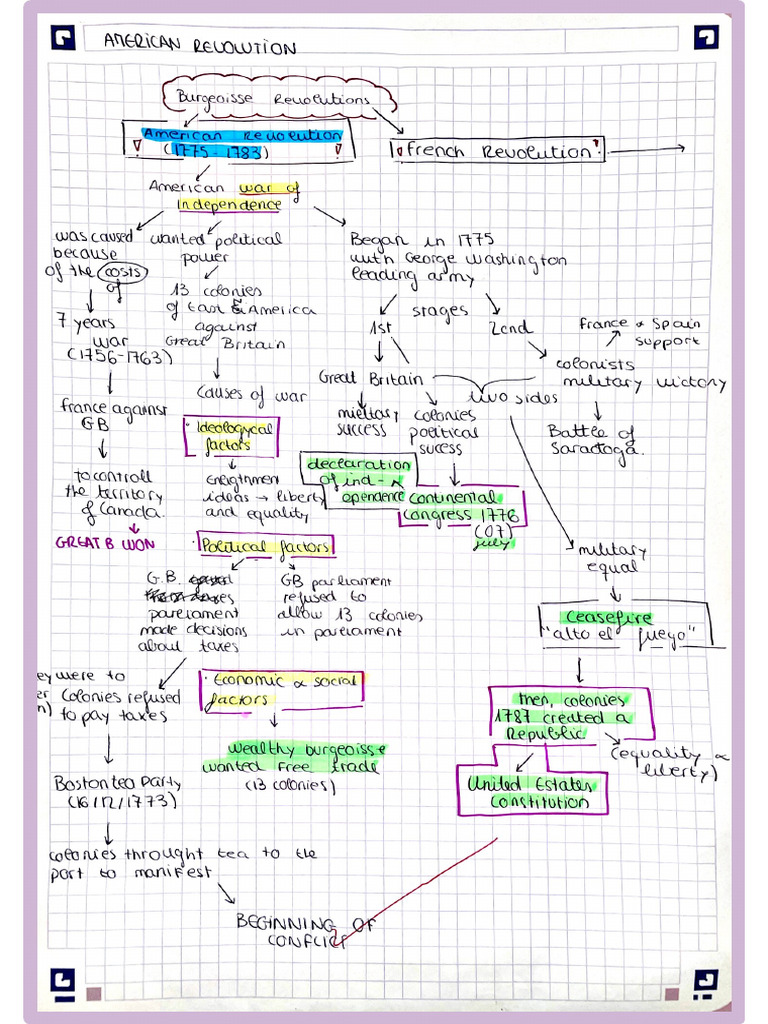 AMERICAN REVOLUTION
Burgeoisse Revolutions
American Revolution
(1775-1783)
French Revolution
American war of
independence
was caused
because
of the costs
of
7 years
war
(1756-1763)
france against
GB
to controll
the territory
of Canada.
GREAT B WON
wanted political
power
13 colonies
of East & America
against
Great Britain
Causes of war
· Ideologycal
factors
Enlightment
ideas → liberty
and equality
· Political factors
G.B.
parliament
made decisions
about taxes
GB parliament
refused to
allow 13 colonies
in parliament
ey were to
colonies refused
n) to pay taxes
Boston tea Party
(16/12/1773)
colonies throught tea to the
port to manifest
BEGINNING OF
CONFLICT
· Economic & social
factors
wealthy burgeoisse
wanted free trade
(13 colonies)
Began in 1775
with George Washington
leading army
stages
1st
2cnd
Great Britain
two sides
mieltary
success
colonies
political
sucess
declaration
of ind-
ependence
Continental
Congress 1776
(07)
july
colonists
military victory
france & Spain
support
Battle of
Saractoga.
military
equal
ceasefire
"alto el fuego"
then, colonies
1787 created a
Republic
(equality &
liberty)
United Estates
Constitution